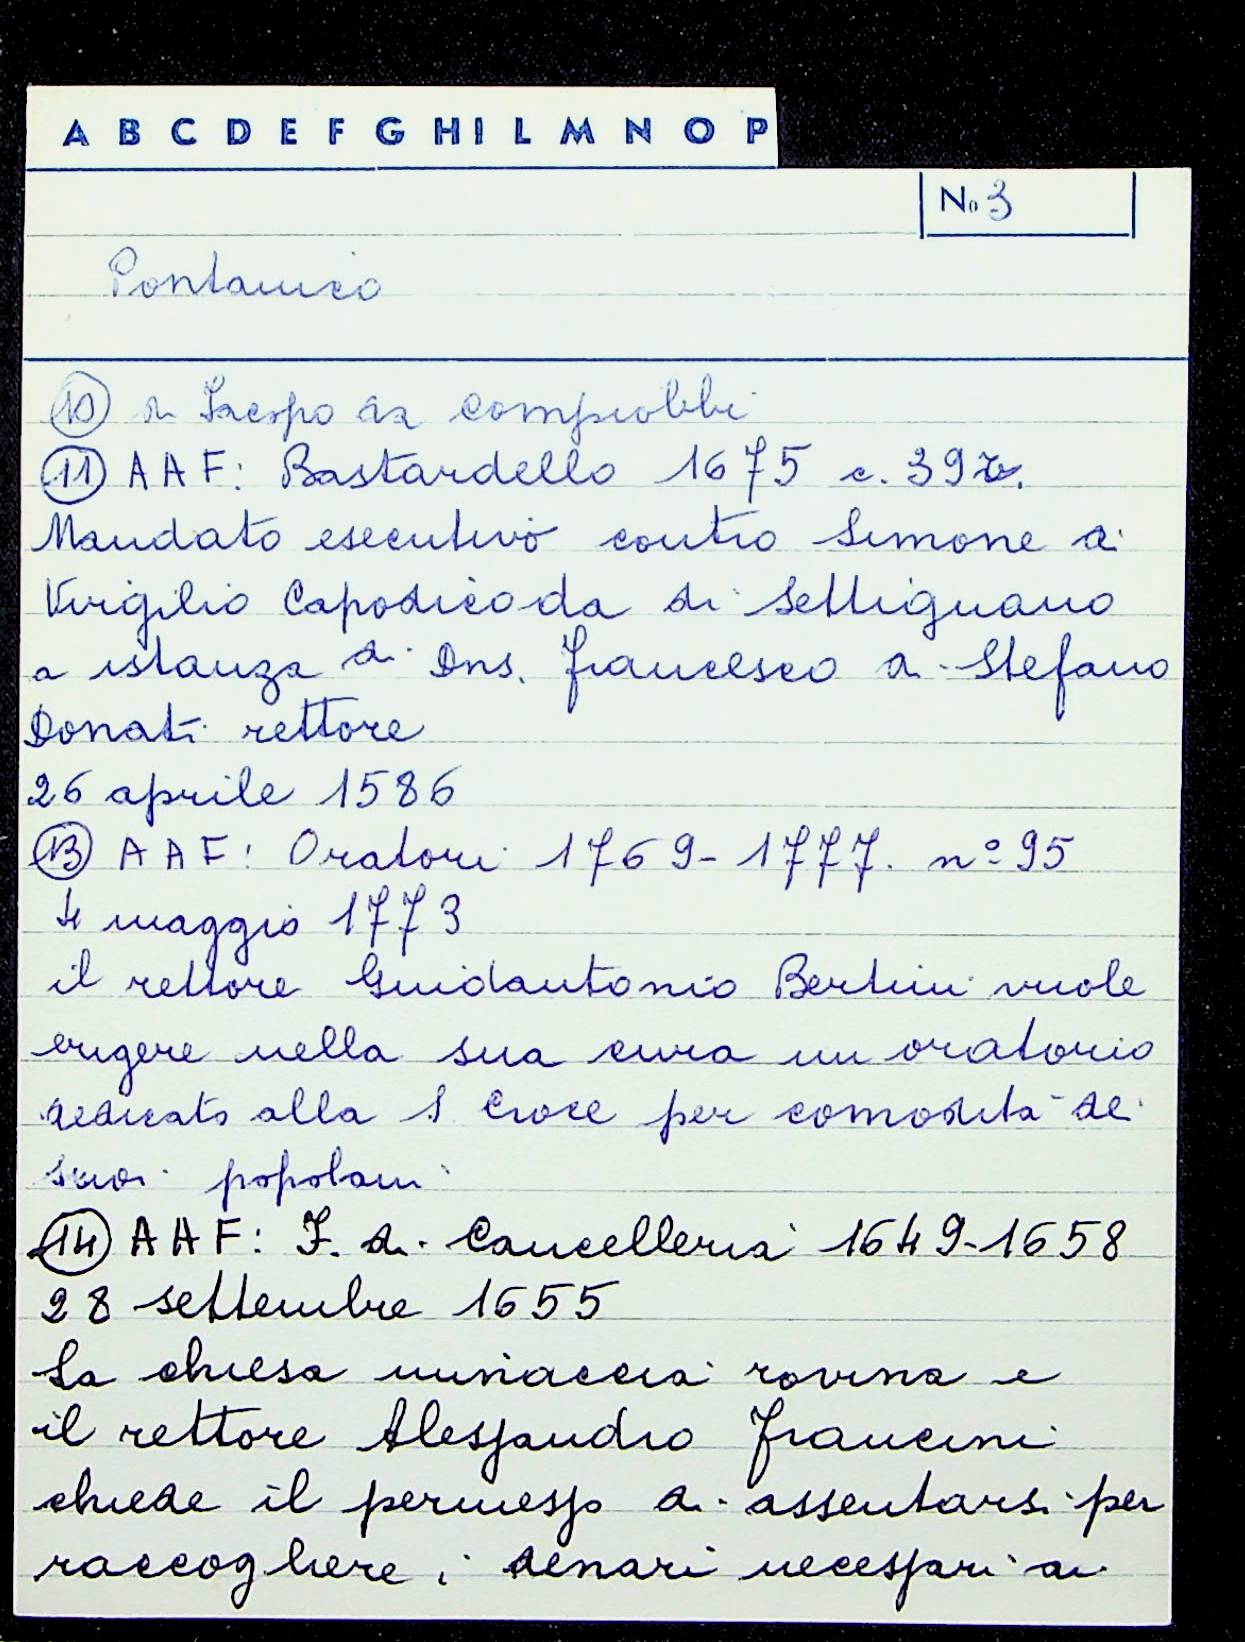 A B C D E F G H I L M N O P
No 3
Pontanico
10 di Jacopo da Compiobbi
11 AAF: Bastardello 1675 c. 39v.
Mandato esecutivo contro Simone di
Virgilio Capodicoda di Settignano
a istanza di Dns. Francesco di Stefano
Donati rettore
26 aprile 1586
13 AAF: Oratori 1769-1777. n° 95
4 maggio 1773
il rettore Guidantonio Bertini vuole
erigere nella sua cura un oratorio
dedicato alla S Croce per comodità dei
suoi popolani
14 AAF: F. di Cancelleria 1649-1658
28 settembre 1655
La chiesa minaccia rovina e
il rettore Alessandro Francini
chiede il permesso di assentarsi per
raccogliere i denari necessari ai